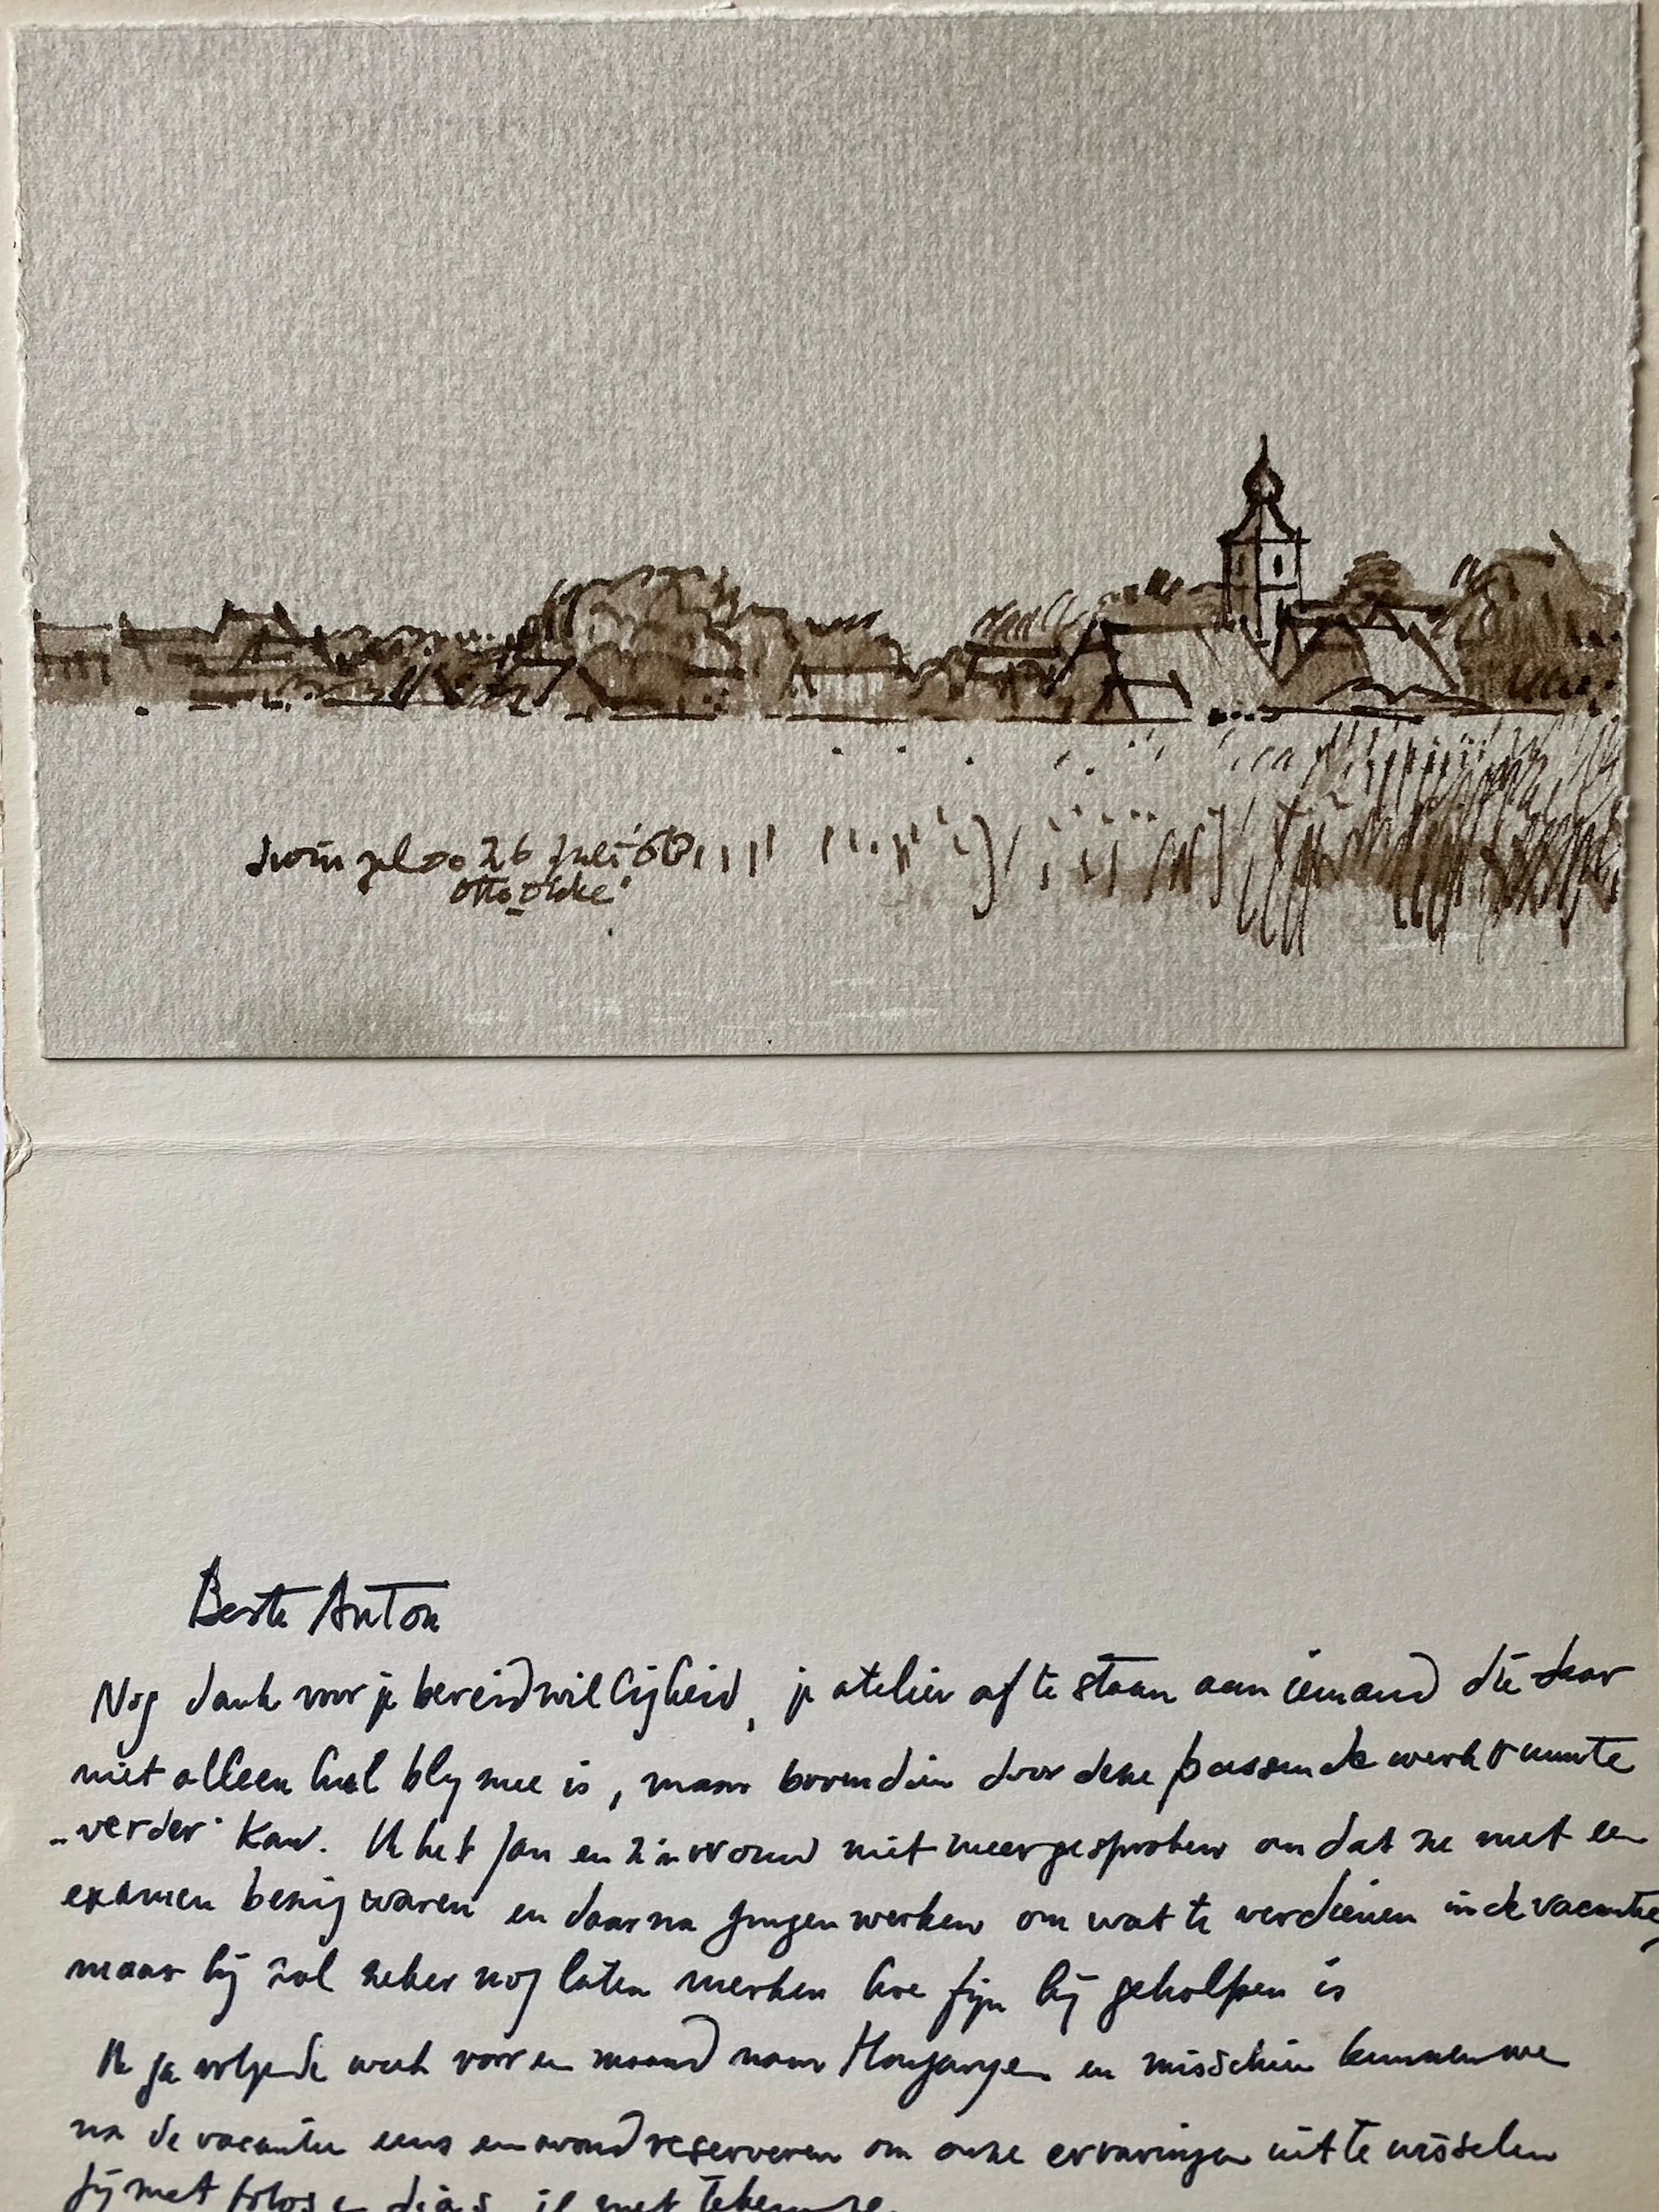 Zwingelo 26 Juli '68
Otto Dicke
Beste Anton
Nog dank voor je bereidwilligheid, je atelier af te staan aan iemand die daar
niet alleen heel bly mee is, maar bovendien door deze passende werkruimte
„verder" kan. Ik heb Jan en z'n vrouw niet meer gesproken omdat ze met een
examen bezig waren en daarna gingen werken om wat te verdienen in de vacantie,
maar hij zal zeker nog laten merken hoe fijn hij geholpen is
Ik ga volgende week voor een maand naar Hongarye en misschien kunnen we
na de vacantie eens een avond reserveren om onze ervaringen uit te wisselen
jij met fotos en dia's, ik met